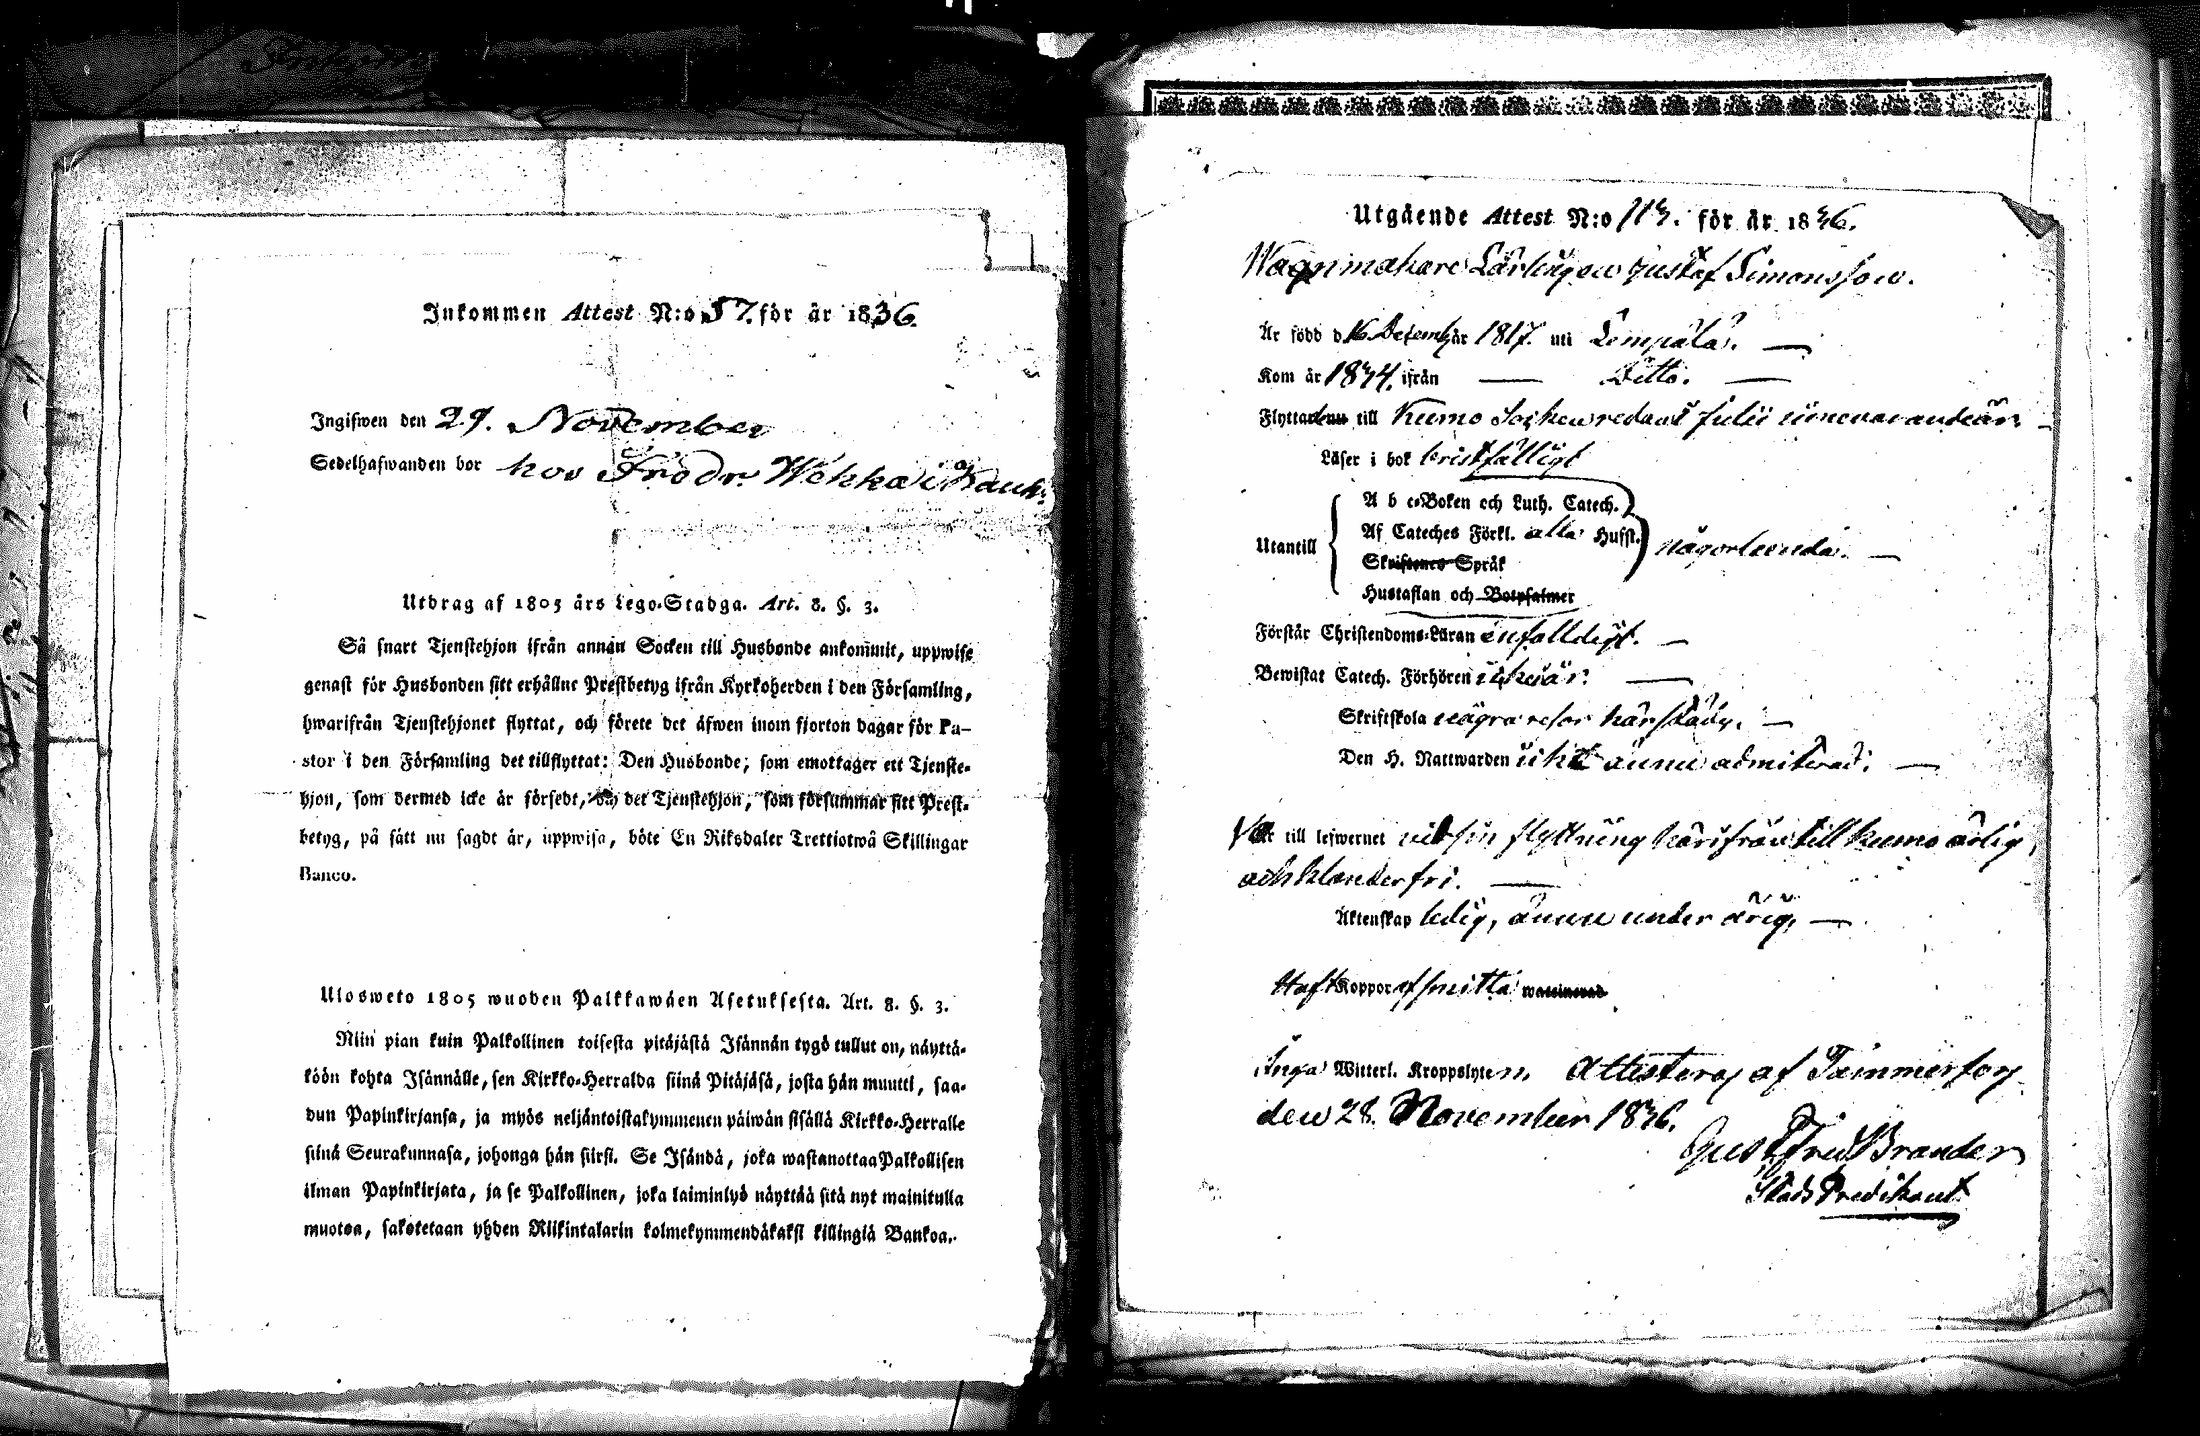 Inkommen Attest N:o 57. för år 1836.
Ingifwen den 29. November
Sedelhafwanden bor hos Frödr Wehka i
Utdrag af 1805 års Lego-Stadga. Art. 8. §. 3.
Så snart Tjenstehjon ifrån annan Socken till Husbonde ankommit, uppwise
genast för Husbonden sitt erhållne Prestbetyg ifrån Kyrkoherden i den Församling,
hwarifrån Tjenstehjonet flyttat, och förete det äfwen inom fjorton dagar för Pa-
stor i den Församling det tillflyttat: Den Husbonde, som emottager ett Tjenste-
hjon, som dermed icke är försedt, det Tjenstehjon, som försummar sitt Prest-
betyg, på sätt nu sagdt är, uppwisa, böte En Riksdaler Trettiotwå Skillingar
Banco.
Ulosweto 1805 wuoden Palkkawäen Asetuksesta. Art. 8. §. 3.
Niin pian kuin Palkollinen toisesta pitäjästä Isännän tygö tullut on, näyttä-
köön kohta Isännälle, sen Kirkko-Herralda siinä Pitäjäsä, josta hän muutti, saa-
dun Papinkirjansa, ja myös neljäntoistakymmenen päiwän sisällä Kirkko-Herralle
siinä Seurakunnasa, johonga hän siirsi. Se Isändä, joka wastanottaa Palkollisen
ilman Papinkirjata, ja se Palkollinen, joka laiminlyö näyttää sitä nyt mainitulla
muotoa, sakotetaan yhden Riikintalarin kolmekymmendäkaksi killingiä Bankoa.
Utgående Attest N:o 113. för år 1836.
Wagnmakare Lärlingen Gustaf Simonsson.
Är född d 16 Decemb år 1817. uti Lempälä.
Kom år 1834. ifrån Ditto.
Flyttade till Kumo Socken redan i Julii innevarande år
Läser i bok bristfälligt
A b c-Boken och Luth. Catech.
Utantill Af Cateches Förkl. alla Hufst. någorlunda.
Skriftenes Språk
Hustaflan och Botpsalmer
Förstår Christendoms-Läran enfalldigt.
Bewistat Catech. Förhören i år.
Skriftskola några resor härstädes.
Den H. Nattwarden icke ännu admitterad.
Var till lefwernet vid sin flyttning härifrån till Kumo ärlig
och klanderfri.
Äktenskap ledig, ännu under årig,
Haft Koppor af smitta waccinerad
Inga Witterl. Kroppslyten. Attesteras af Tammerfors
den 28. November 1836.
Gust Fred Brander
Stads Predikant